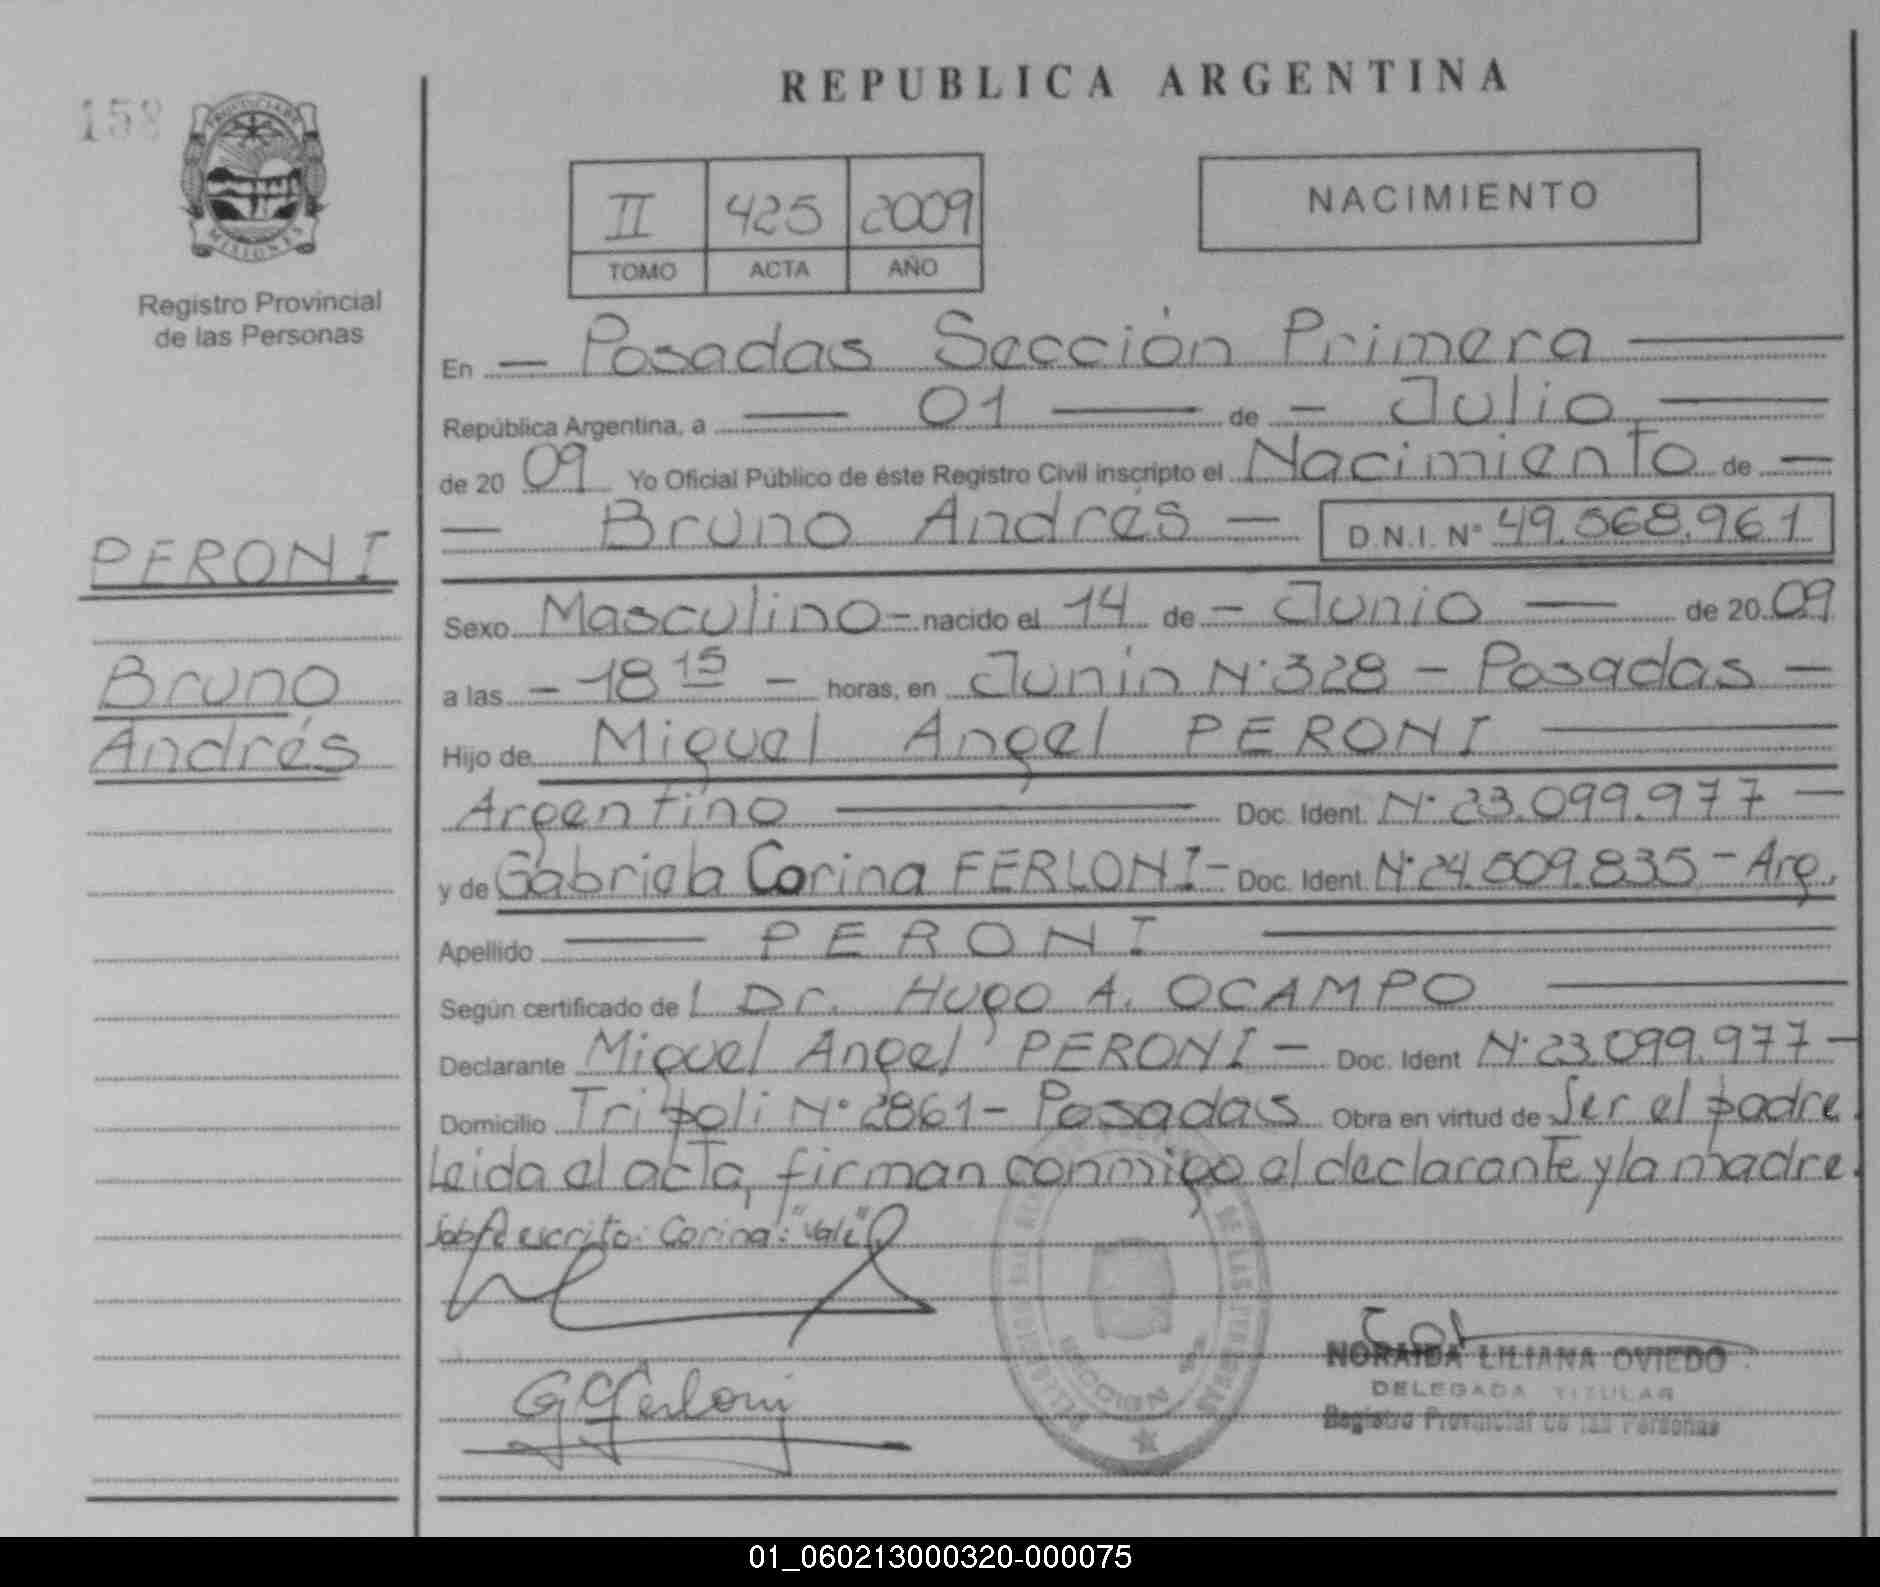 REPUBLICA ARGENTINA
158
PROVINCIA DE
MISIONES
Registro Provincial
de las Personas
II 425 2009
TOMO ACTA AÑO
NACIMIENTO
En — Posadas Sección Primera —
República Argentina, a — 01 — de — Julio —
de 2009 Yo Oficial Público de éste Registro Civil inscripto el Nacimiento de —
— Bruno Andrés — D.N.I. Nº 49.568.961
PERONI
Bruno
Andrés
Sexo Masculino — nacido el 14 de — Junio — de 2009
a las — 18 15 — horas, en Junín Nº 328 — Posadas —
Hijo de Miguel Angel PERONI —
Argentino — Doc. Ident. Nº 23.099.977 —
y de Gabriela Corina FERLONI — Doc. Ident. Nº 24.509.835 — Arg.
Apellido — PERONI —
Según certificado de l Dr. Hugo A. OCAMPO —
Declarante Miguel Angel PERONI — Doc. Ident Nº 23.099.977 —
Domicilio Tripoli Nº 2861 — Posadas Obra en virtud de Ser el padre.
Leida el acta, firman conmigo el declarante y la madre.
Sobre escrito: Corina: "Vale"
GCFerloni
SECCION
NORAIDA LILIANA OVIEDO
DELEGADA TITULAR
Registro Provincial de las Personas
01_060213000320-000075